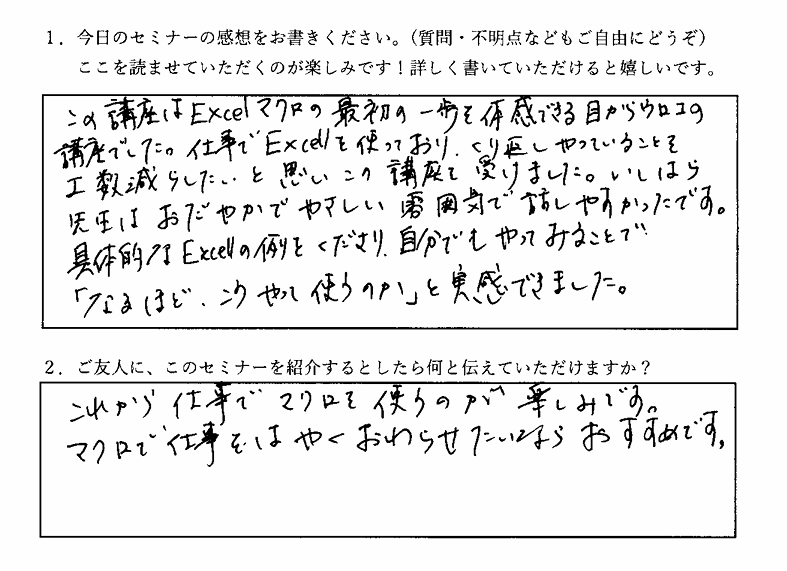 1．今日のセミナーの感想をお書きください。（質問・不明点などもご自由にどうぞ）
ここを読ませていただくのが楽しみです！詳しく書いていただけると嬉しいです。
この講座はExcelマクロの最初の一歩を体感できる目からウロコの
講座でした。仕事でExcellを使っており、くり返しやっていることを
工数減らしたいと思いこの講座を受けました。いしはら
先生はおだやかでやさしい雰囲気で話しやすかったです。
具体的なExcellの例をくださり、自分でもやってみることで
「なるほど、こうやって使うのか」と実感できました。
2．ご友人に、このセミナーを紹介するとしたら何と伝えていただけますか？
これから仕事でマクロを使うのが楽しみです。
マクロで仕事をはやくおわらせたいならおすすめです。